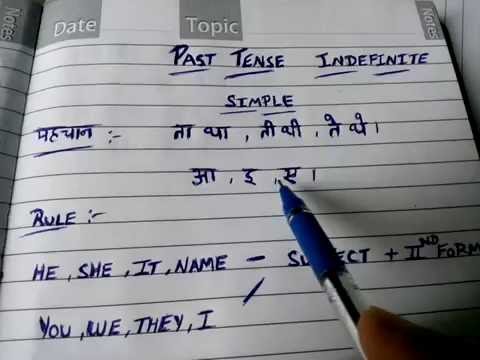 Notes Date Topic Notes
PAST TENSE INDEFINITE
SIMPLE
पहचान :- ता था , ती थी , ते थे ।
आ , इ , ए ।
RULE :-
HE , SHE , IT , NAME – SUBJECT + IIND FORM
YOU , WE , THEY , I